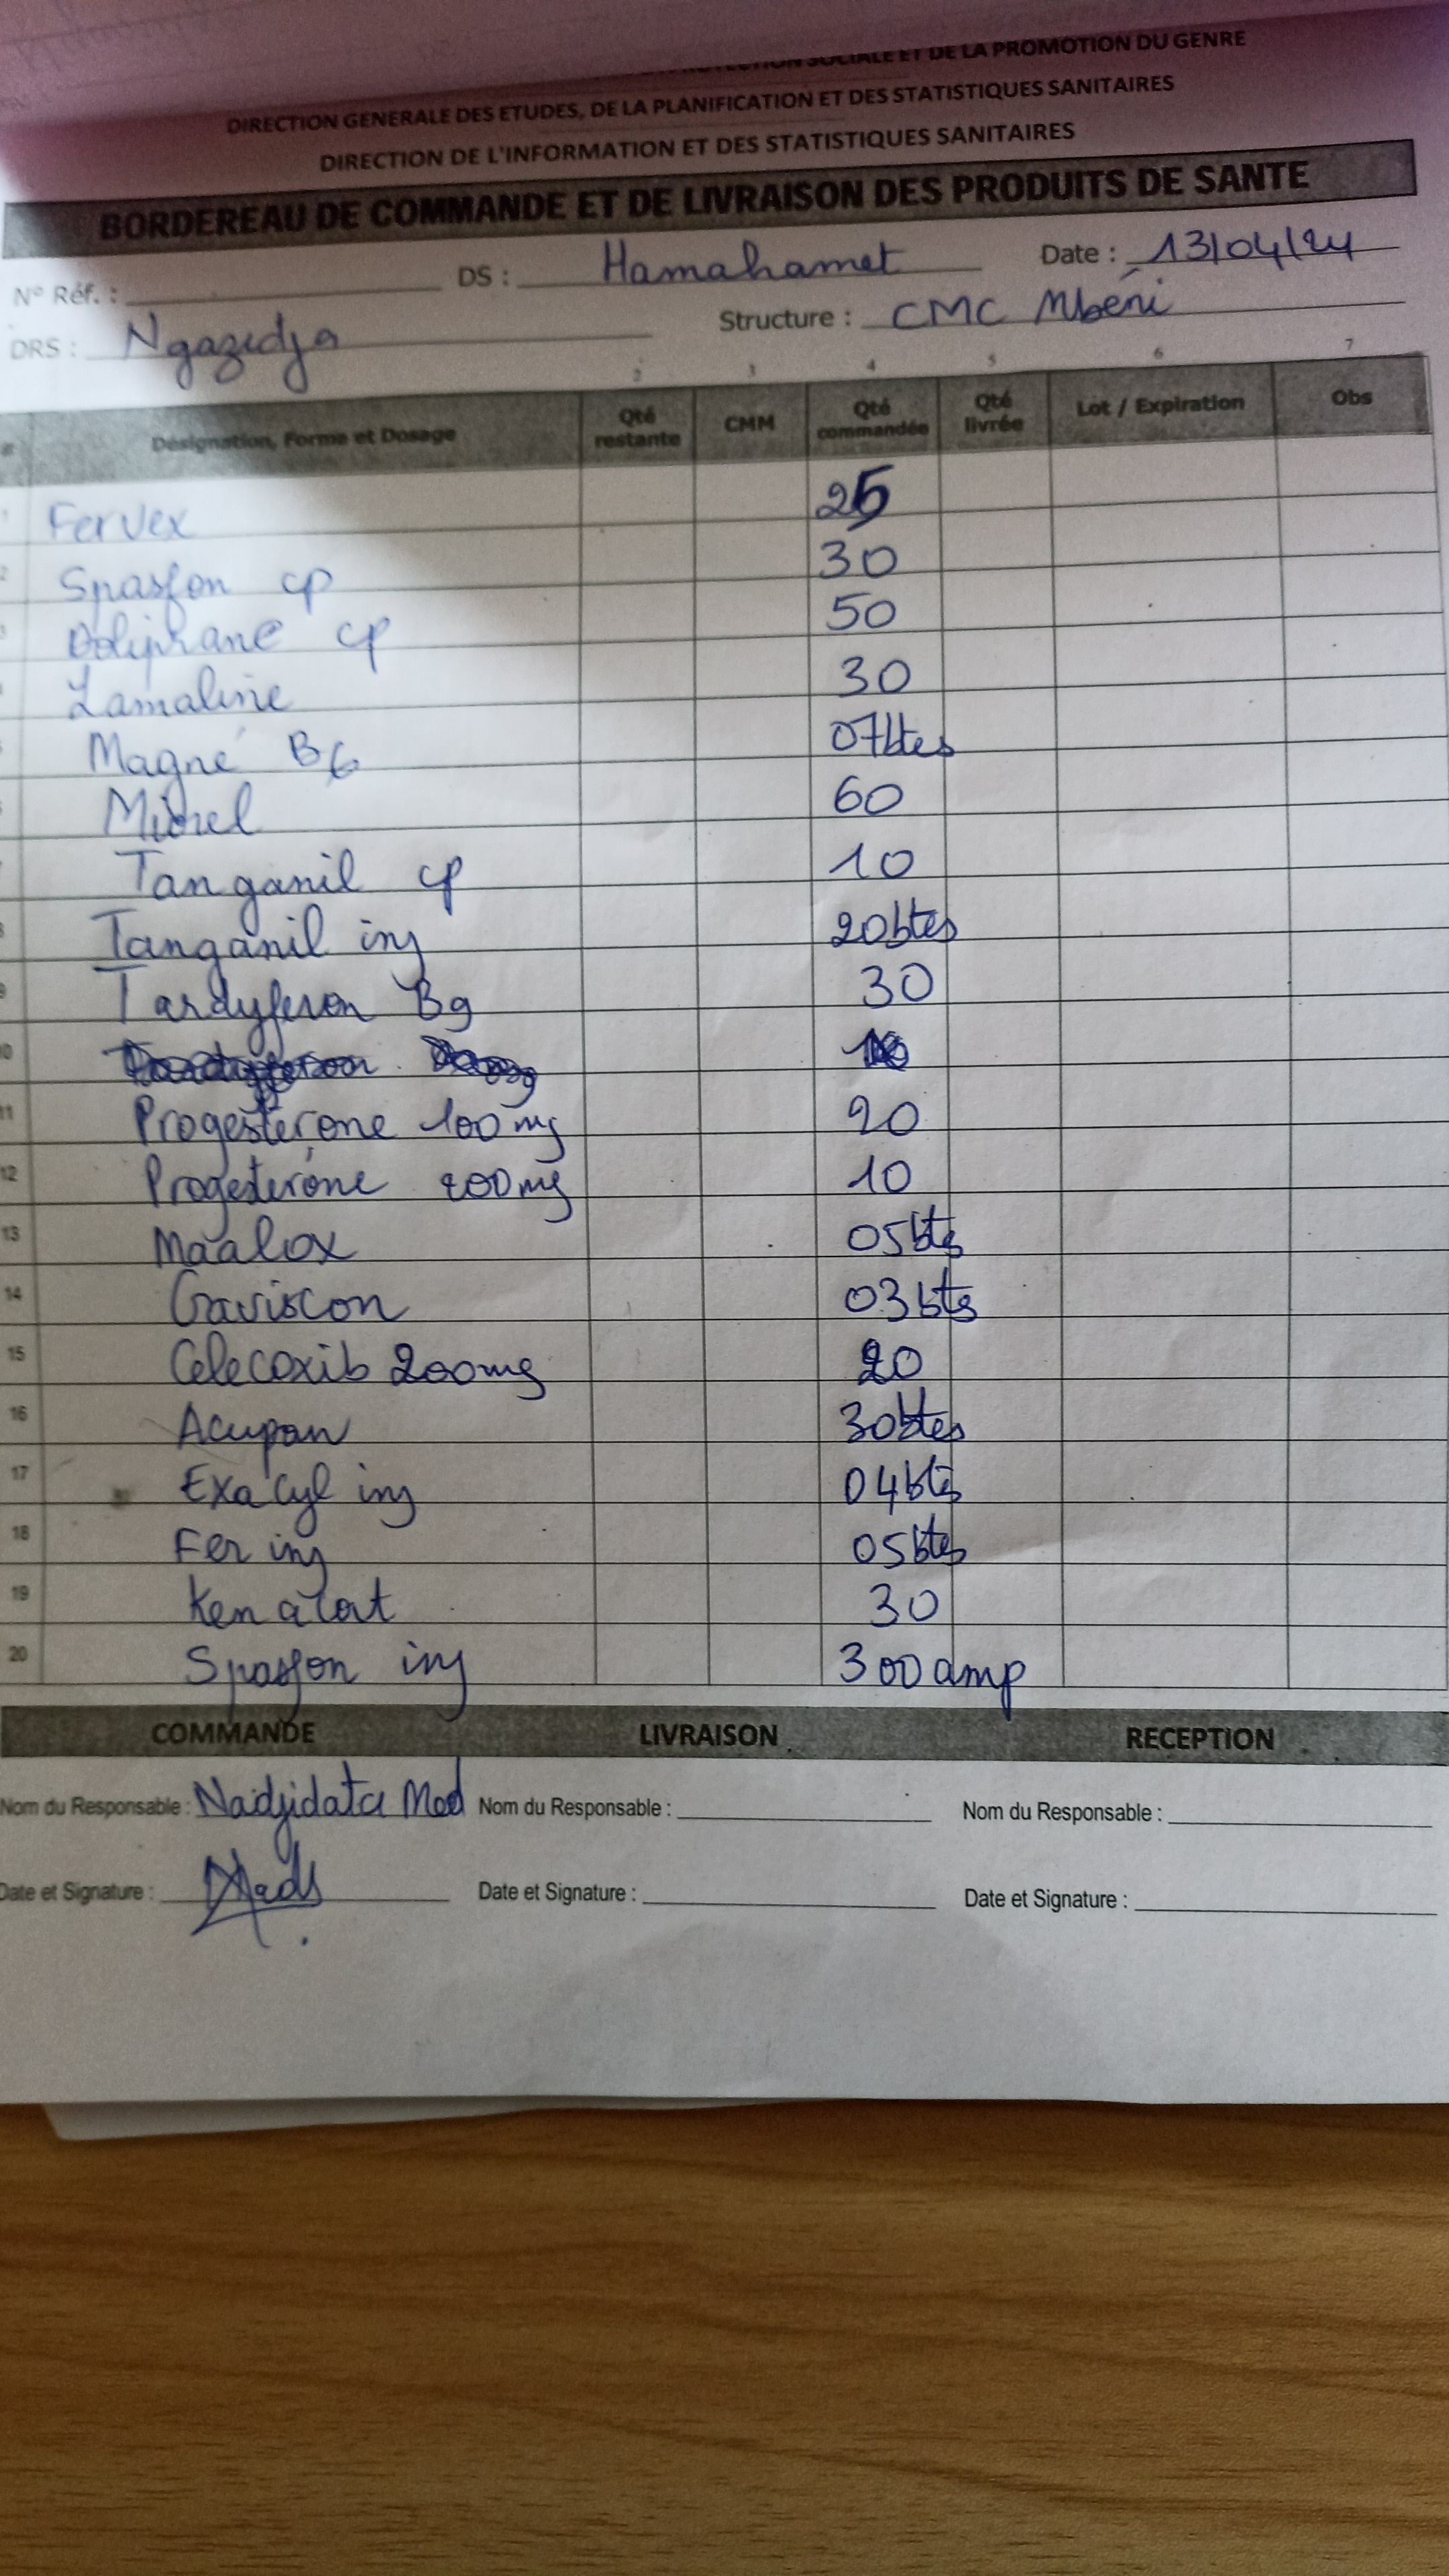 SOCIALE ET DE LA PROMOTION DU GENRE
DIRECTION GENERALE DES ETUDES, DE LA PLANIFICATION ET DES STATISTIQUES SANITAIRES
DIRECTION DE L'INFORMATION ET DES STATISTIQUES SANITAIRES
BORDEREAU DE COMMANDE ET DE LIVRAISON DES PRODUITS DE SANTE
N° Réf. : DS : Hamahamet Date : 13/04/24
DRS : Ngazidja Structure : CMC Mbéni
2 3 4 5 6 7
# Désignation, Forme et Dosage Qté restante CMM Qté commandée Qté livrée Lot / Expiration Obs
1 Fervex 25
2 Spasfon cp 30
3 Doliprane cp 50
Lamaline 30
5 Magné B6 07btes
60
Tanganil cp 10
8 Tanganil inj 20btes
9 Tardyferon B9 30
10
11 Progestérone 100mg 20
12 Progeterone 200mg 10
13 Maalox 05bts
14 Gaviscon 03bts
15 Celecoxib 200mg 20
16 Acupan 30btes
17 Exacyl inj 04bts
18 Fer inj 05btes
19 30
20 Spasfon inj 300amp
COMMANDE LIVRAISON RECEPTION
Nom du Responsable : Nadjidata Med Nom du Responsable : Nom du Responsable :
Date et Signature : Date et Signature : Date et Signature :